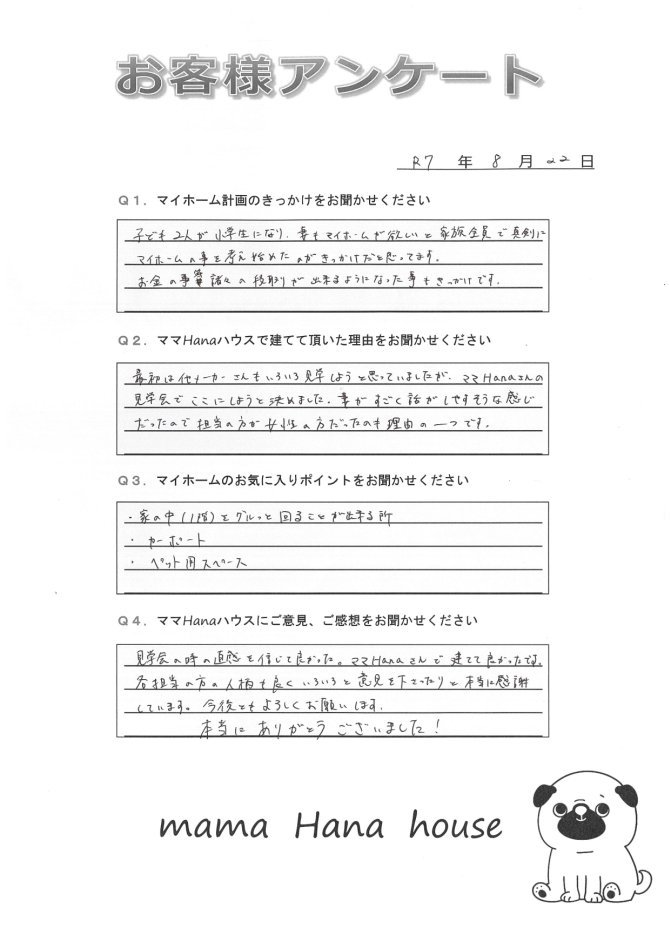 お客様アンケート
R7 年 8 月 22 日
Q1. マイホーム計画のきっかけをお聞かせください
子ども2人が小学生になり、妻もマイホームが欲しいと家族全員で真剣に
マイホームの事を考え始めたのがきっかけだと思ってます。
お金の事等諸々の段取りが出来るようになった事もきっかけです。
Q2. ママHanaハウスで建てて頂いた理由をお聞かせください
最初は他メーカーさんもいろいろ見学しようと思っていましたが、ママHanaさんの
見学会でここにしようと決めました。妻がすごく話がしやすそうな感じ
だったので担当の方が女性の方だったのも理由の一つです。
Q3. マイホームのお気に入りポイントをお聞かせください
・家の中(1階)をグルっと回ることが出来る所
・カーポート
・ペット用スペース
Q4. ママHanaハウスにご意見、ご感想をお聞かせください
見学会の時の直感を信じて良かった。ママHanaさんで建てて良かったです。
各担当の方の人柄も良くいろいろと意見を下さったりと本当に感謝
しています。今後ともよろしくお願いします。
本当にありがとうございました!
mama Hana house